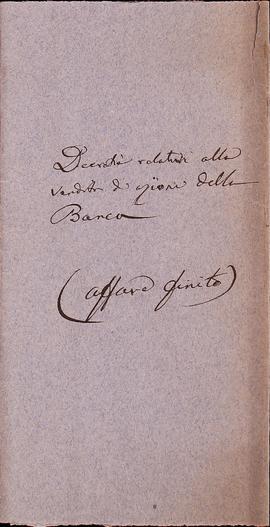 Decreti relativi alla
vendita di azioni della
Banca
(affare finito)